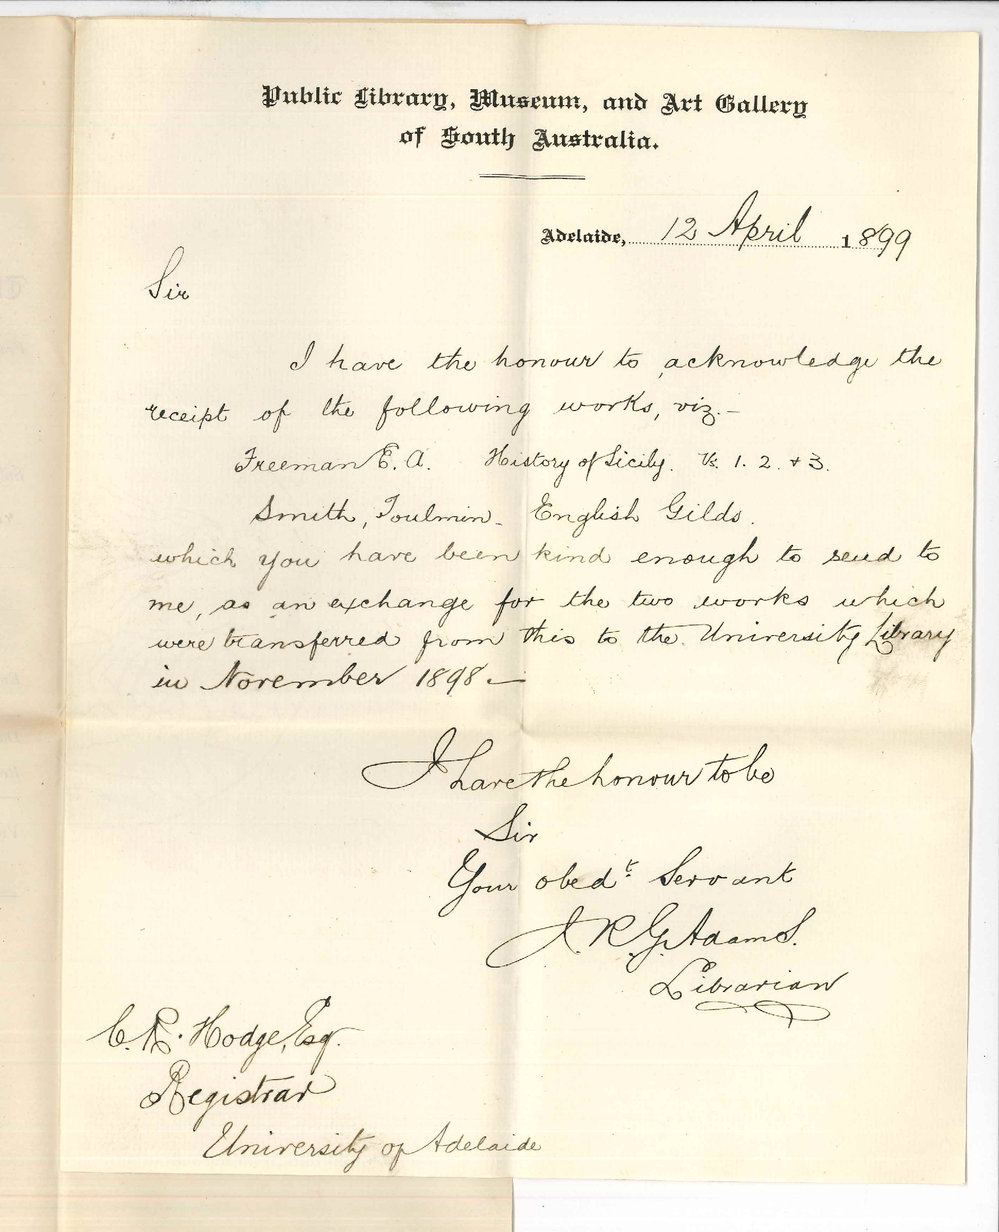 Public Library, Museum, and Art Gallery
of South Australia.
Adelaide, 12 April 1899
Sir
I have the honour to acknowledge the
receipt of the following works, viz.-
Freeman E. A. History of Sicily. Vs. 1. 2. + 3.
Smith, Toulmin - English Gilds.
which you have been kind enough to send to
me, as an exchange for the two works which
were transferred from this to the University Library
in November 1898 —
I have the honour to be
Sir
Your obedt Servant
J. R. G. Adams.
Librarian
C. R. Hodge, Esq.
Registrar
University of Adelaide